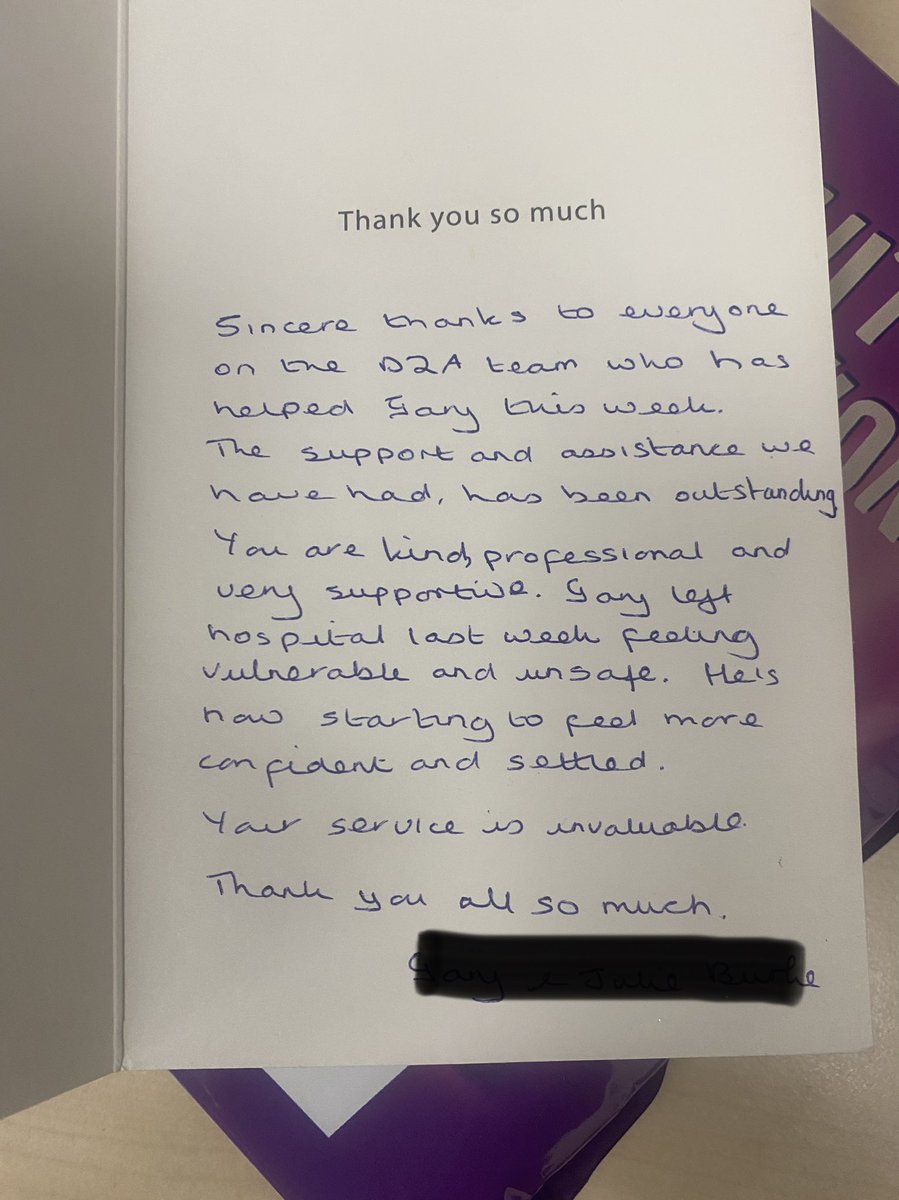 Thank you so much
Sincere thanks to everyone
on the D2A team who has
helped Gary this week.
The support and assistance we
have had, has been outstanding
You are kind, professional and
very supportive. Gary left
hospital last week feeling
vulnerable and unsafe. He is
now starting to feel more
confident and settled.
Your service is invaluable.
Thank you all so much.